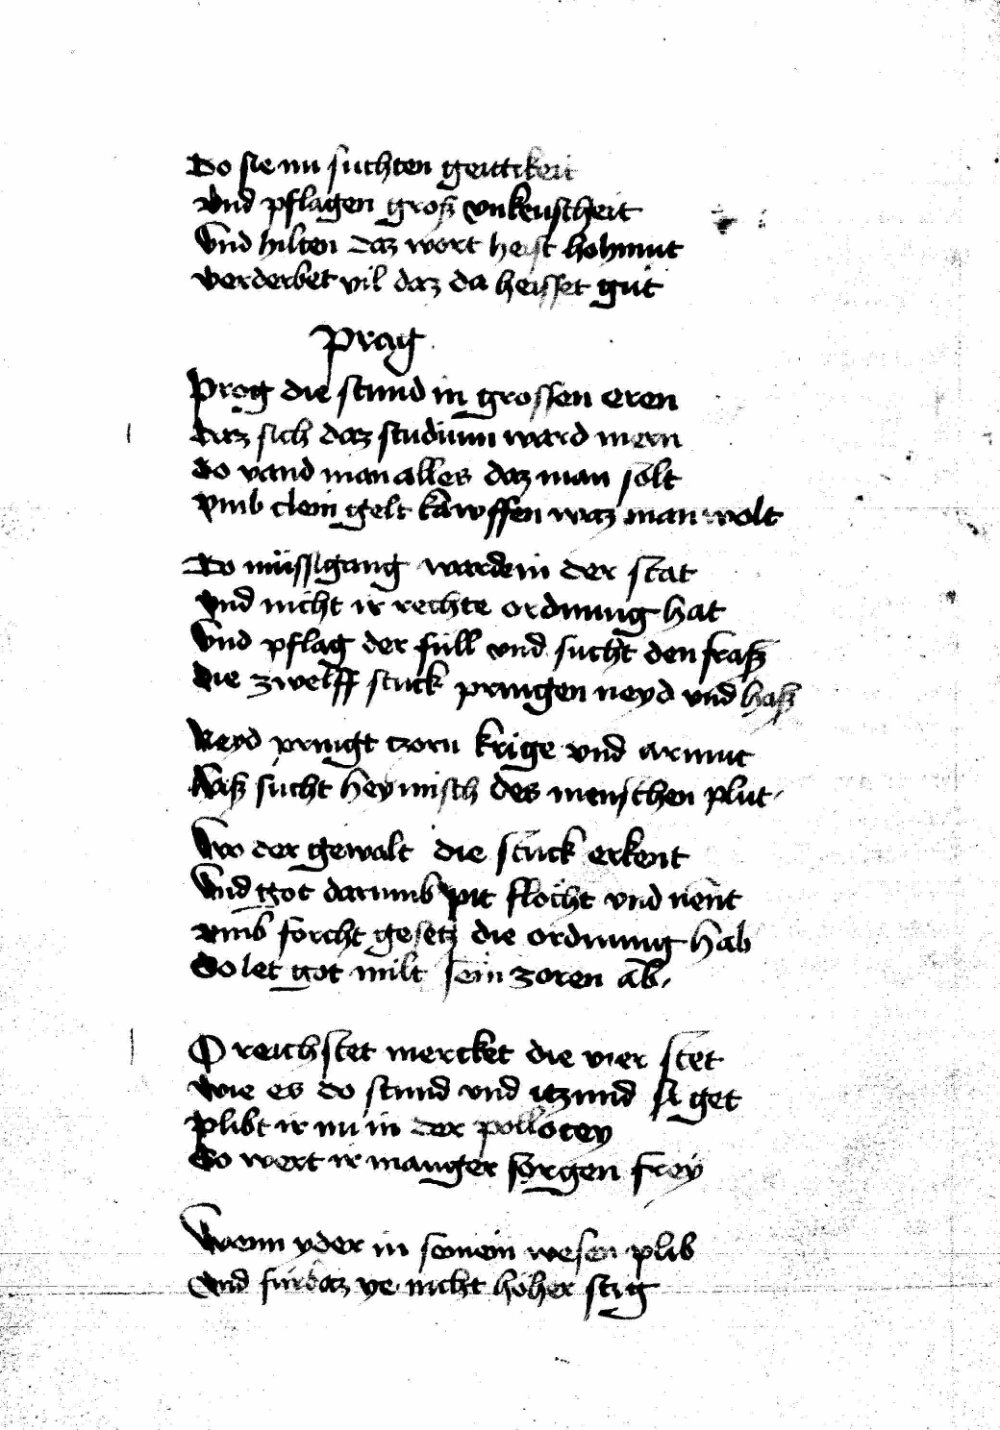 Do sie nu suchten geittikeit
vnd pflagen groß vnkeuscheit
Vnd hilten daz wort heist hohmut
verderbet vil daz da heisset gut
Prag
Prag die stund in grossen eren
daz sich daz studium ward mern
do vand man alles daz man solt
vmb clein gelt kawffen waz man wolt
Do müssigang ward in der stat
vnd nicht ir rechte ordnung hat
Vnd pflag der füll vnd sucht den fraß
die zwelff stuck pringen neyd vnd haß
Neyd pringt tzorn krige vnd armut
haß sucht heymisch des menschen plut
Wo der gewalt die stuck erkent
Vnd got darumb pit flocht vnd nent
vmb forcht gesetz die ordnung hab
So let got milt sein zoren ab
O reichstet mercket die vier stet
wie es do stund vnd itzund si get
plibt ir nu in der pollocey
So wert ir manger sorgen frey
Wenn yder in seinem wesen plib
Vnd fürbaz ye nicht höher stig